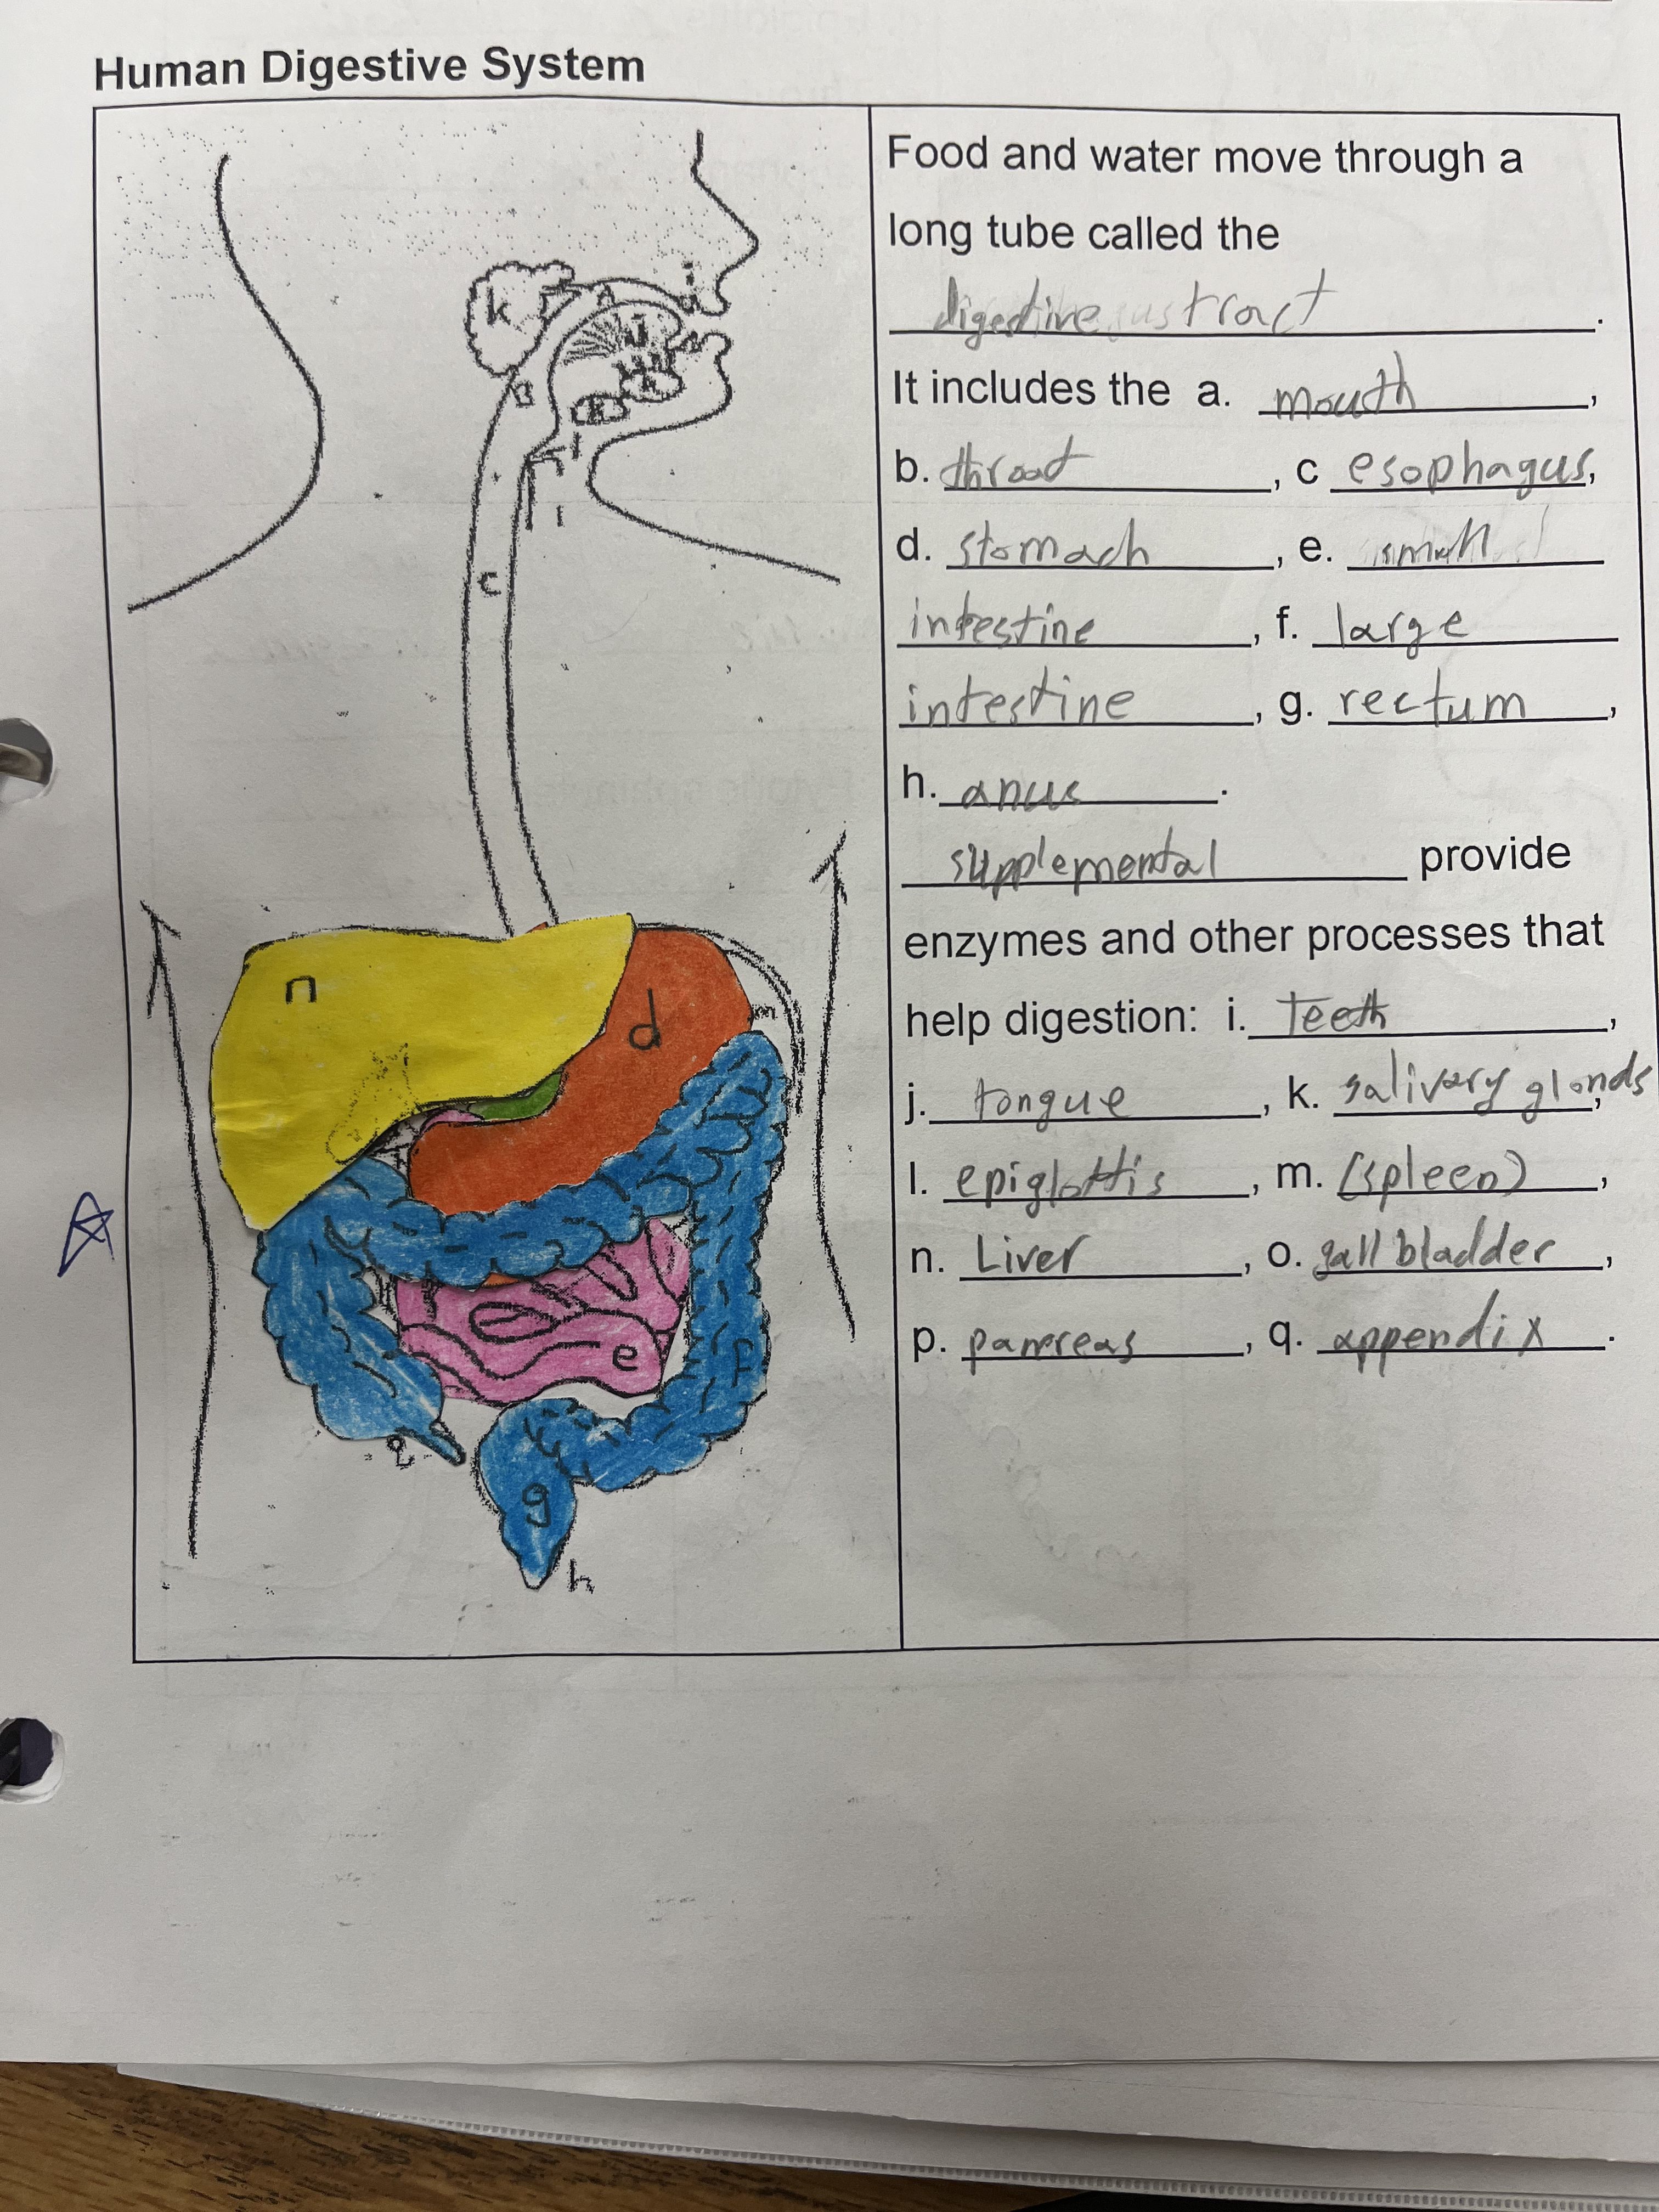 Human Digestive System
k
A
i
J
B
k
l
c
n
d
m
e
f
q
g
h
Food and water move through a
long tube called the
digestive tract.
It includes the a. mouth,
b. throat, c esophagus,
d. stomach, e. small
intestine, f. large
intestine, g. rectum,
h. anus.
supplemental provide
enzymes and other processes that
help digestion: i. Teeth,
j. tongue, k. salivary glands,
l. epiglottis, m. (spleen),
n. Liver, o. gall bladder,
p. pancreas, q. appendix.